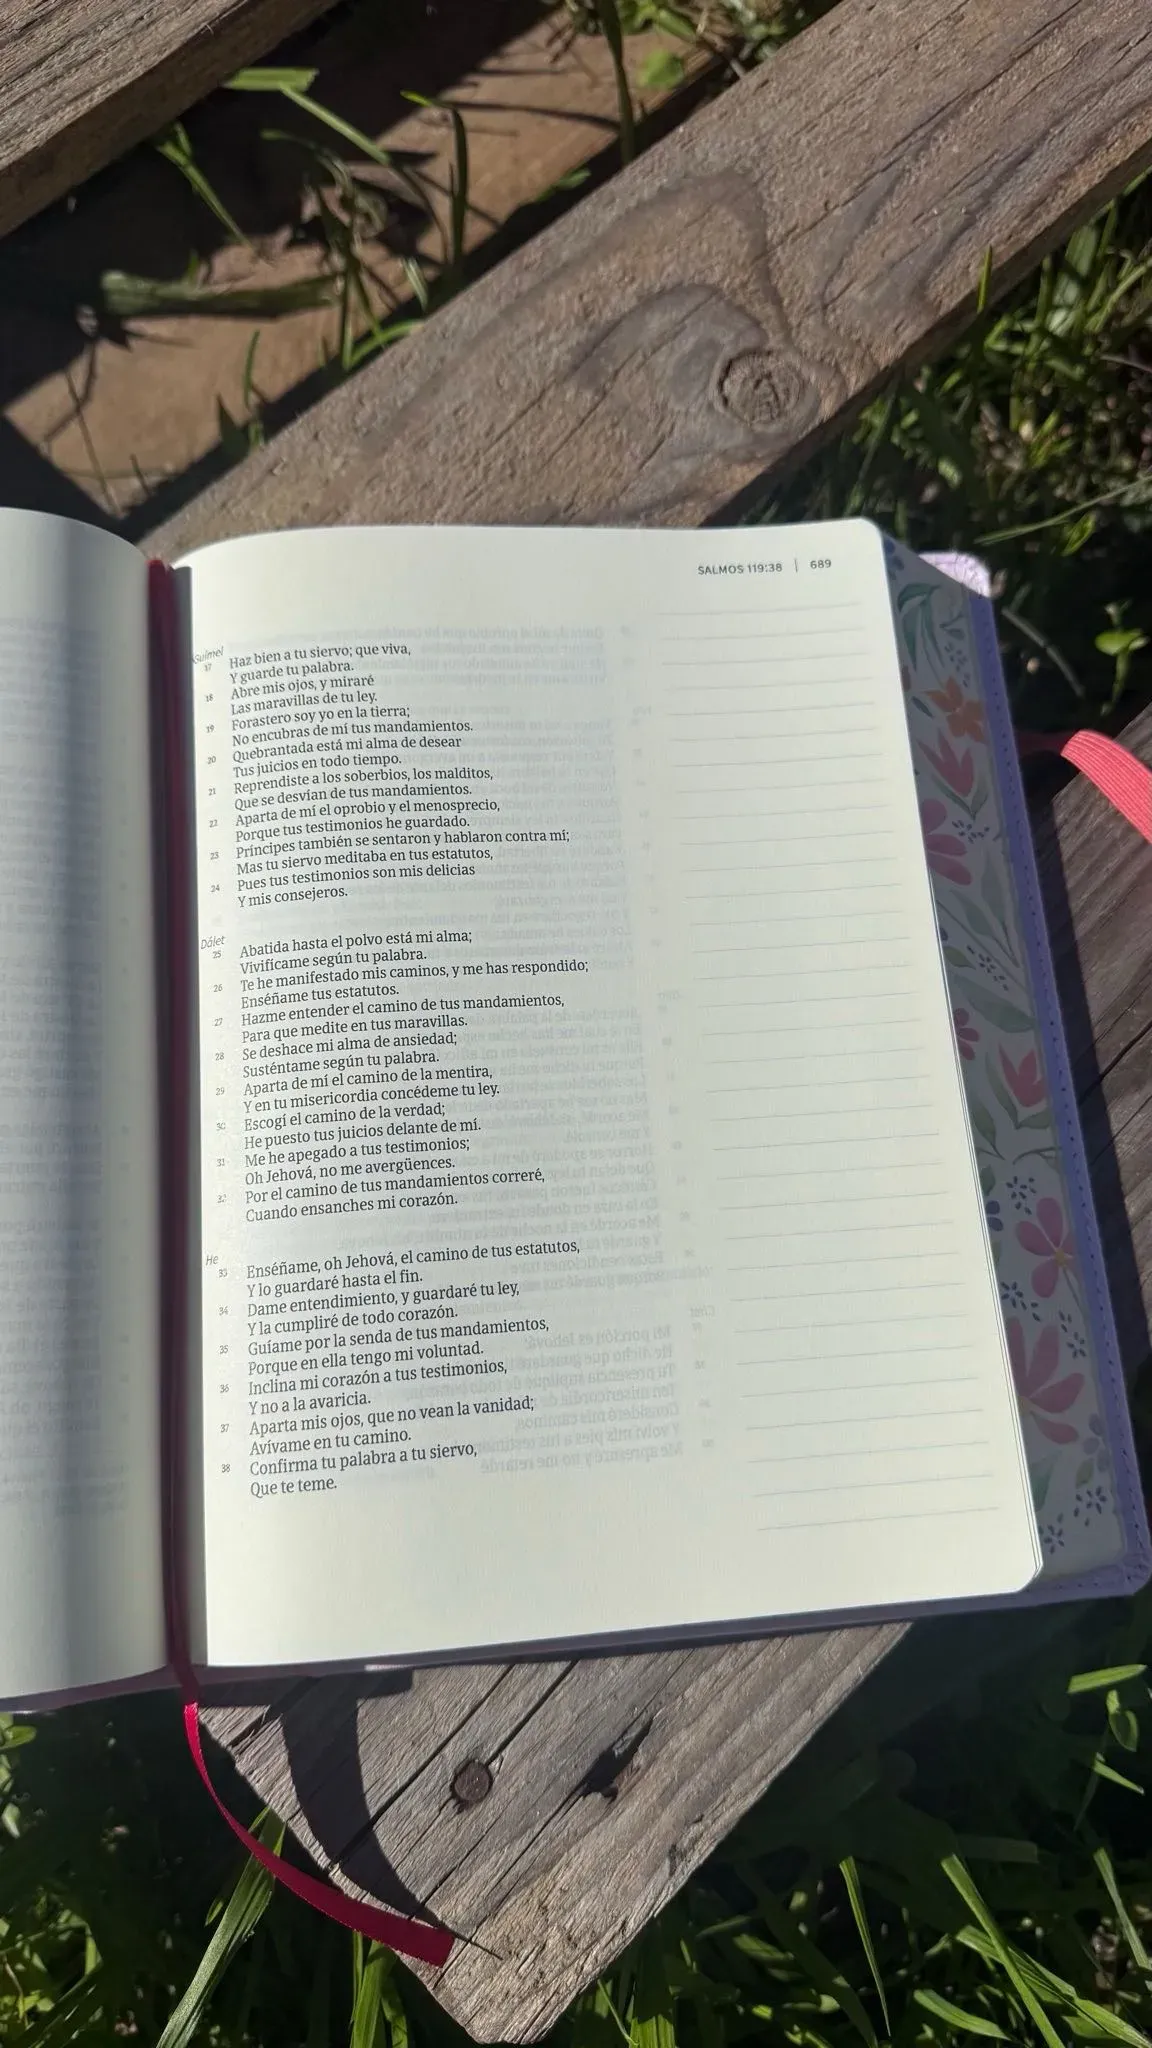 SALMOS 119:38 | 689
Guímel
17 Haz bien a tu siervo; que viva,
Y guarde tu palabra.
18 Abre mis ojos, y miraré
Las maravillas de tu ley.
19 Forastero soy yo en la tierra;
No encubras de mí tus mandamientos.
20 Quebrantada está mi alma de desear
Tus juicios en todo tiempo.
21 Reprendiste a los soberbios, los malditos,
Que se desvían de tus mandamientos.
22 Aparta de mí el oprobio y el menosprecio,
Porque tus testimonios he guardado.
23 Príncipes también se sentaron y hablaron contra mí;
Mas tu siervo meditaba en tus estatutos,
24 Pues tus testimonios son mis delicias
Y mis consejeros.
Dálet
25 Abatida hasta el polvo está mi alma;
Vivifícame según tu palabra.
26 Te he manifestado mis caminos, y me has respondido;
Enséñame tus estatutos.
27 Hazme entender el camino de tus mandamientos,
Para que medite en tus maravillas.
28 Se deshace mi alma de ansiedad;
Susténtame según tu palabra.
29 Aparta de mí el camino de la mentira,
Y en tu misericordia concédeme tu ley.
30 Escogí el camino de la verdad;
He puesto tus juicios delante de mí.
31 Me he apegado a tus testimonios;
Oh Jehová, no me avergüences.
32 Por el camino de tus mandamientos correré,
Cuando ensanches mi corazón.
He
33 Enséñame, oh Jehová, el camino de tus estatutos,
Y lo guardaré hasta el fin.
34 Dame entendimiento, y guardaré tu ley,
Y la cumpliré de todo corazón.
35 Guíame por la senda de tus mandamientos,
Porque en ella tengo mi voluntad.
36 Inclina mi corazón a tus testimonios,
Y no a la avaricia.
37 Aparta mis ojos, que no vean la vanidad;
Avívame en tu camino.
38 Confirma tu palabra a tu siervo,
Que te teme.